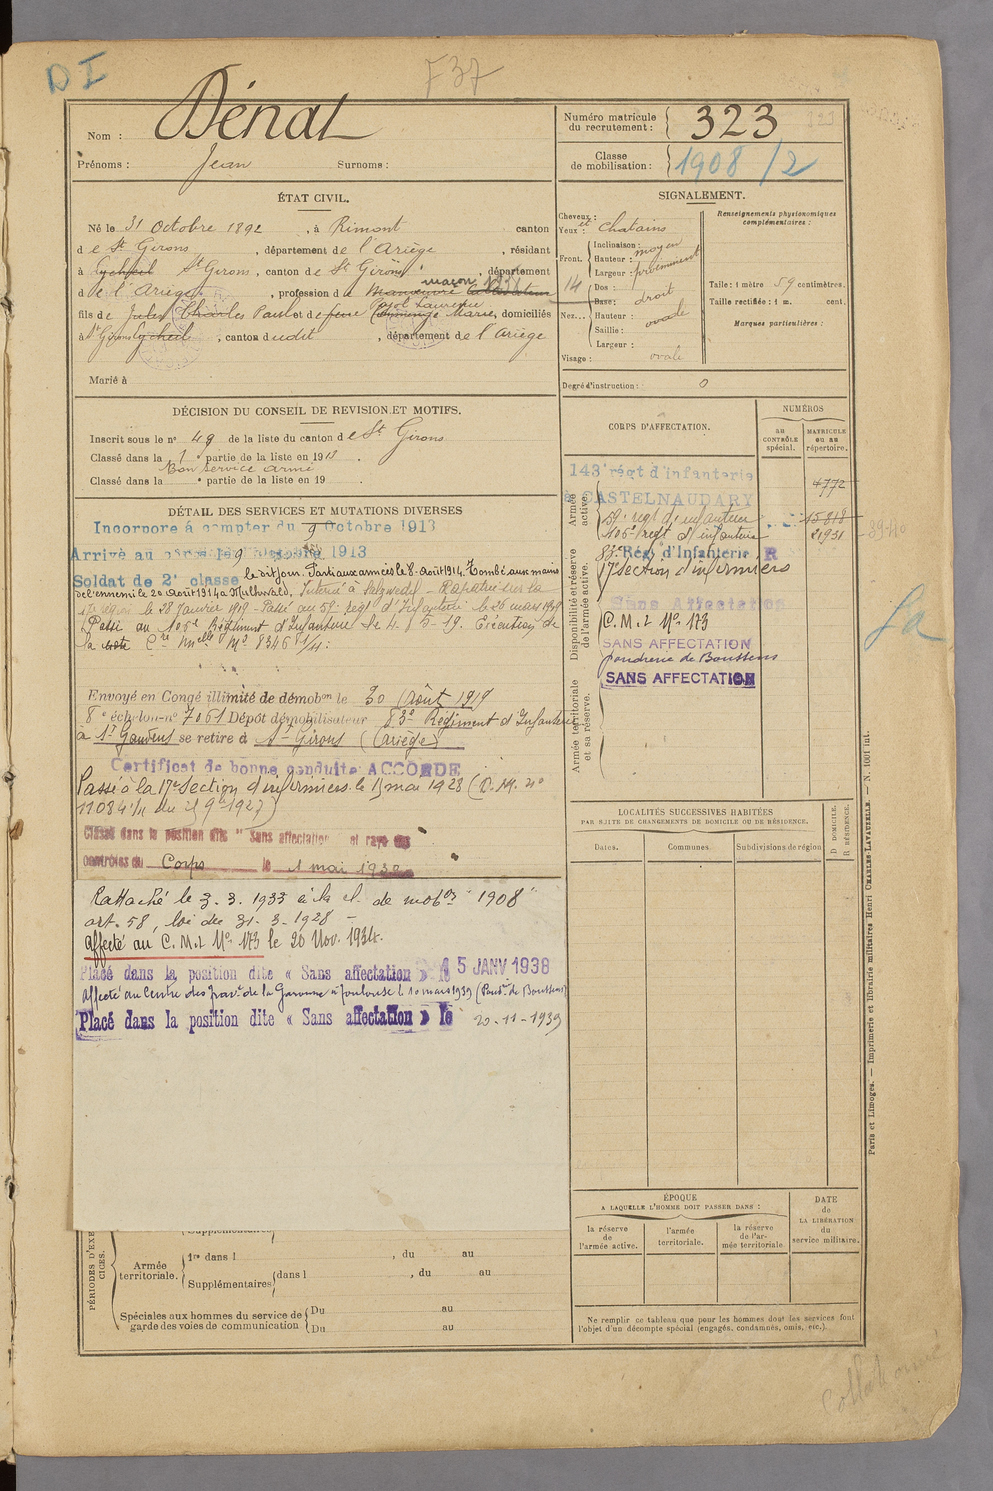 D I
F 37
Nom : Dénat
Prénoms : Jean Surnoms :
Numéro matricule du recrutement : 323
Classe de mobilisation : 1908 /2
ÉTAT CIVIL.
Né le 31 Octobre 1892, à Rimont canton
d e St Girons, département de l'Ariège, résidant
à St Girons, canton de St Girons, département
d e l'Ariège, profession de maçon
fils de Charles Paul et de Marie, domiciliés
à St Girons, canton dudit, département de l'Ariège
Marié à
SIGNALEMENT.
Cheveux :
Yeux : et chatains
Front. Inclinaison : moyen
Hauteur :
Largeur : proéminent
14
Nez... Dos : droit
Base :
Hauteur : ovale
Saillie :
Largeur :
Visage : ovale
Renseignements physionomiques complémentaires :
Taille : 1 mètre 59 centimètres.
Taille rectifiée : 1 m. cent.
Marques particulières :
Degré d'instruction : 0
DÉCISION DU CONSEIL DE REVISION ET MOTIFS.
Inscrit sous le n° 49 de la liste du canton de St Girons
Classé dans la 1e partie de la liste en 1913.
Bon service armé
Classé dans la e partie de la liste en 19 .
DÉTAIL DES SERVICES ET MUTATIONS DIVERSES
Incorporé à compter du 9 Octobre 1913
Arrivé au corps le 9 octobre 1913
Soldat de 2e classe le dit jour. Parti aux armées le 8 août 1914. Tombé aux mains
de l'ennemi le 20 août 1914 à Mulhwald, Interné à Salzwedel - Rapatrié dans la
17e région le 28 Janvier 1919 - Passé au 59e régt d'Infanterie le 26 mars 1919
Passé au 105e Régiment d'Infanterie le 4-5-19. Exécution de
la Cre Melle No 8346 1/11.
Envoyé en Congé illimité de démobon le 30 Août 1919
8e échelon - no 7061 Dépôt démobilisateur 83e Régiment d'Infanterie
à St Gaudens se retire à St Girons (Ariège)
Certificat de bonne conduite ACCORDÉ
Passé à la 17e Section d'infirmiers le 1 mai 1928 (D. M. no
11084 1/11 du 9bre 1927)
Classé dans la position dite "Sans affectation" et rayé des
contrôles du Corps le 1 mai 1932
Rattaché le 3.3.1933 à la cl. de mobon "1908"
art. 58, loi du 31.3.1928 -
affecté au C.M.I. No 173 le 20 Nov. 1934.
Placé dans la position dite « Sans affectation » le 15 JANV 1938
Affecté au Centre des Trav. de la Garonne à Toulouse le 10 mars 1939 (Poud. de Boussens)
Placé dans la position dite « Sans affectation » le 20-11-1939
CORPS D'AFFECTATION.
NUMÉROS
AU CONTRÔLE spécial.
MATRICULE ou au répertoire.
Armée active.
143e régt d'infanterie 4772
à CASTELNAUDARY
59e régt d'infanterie 15818
105e régt d'infanterie 21931
39-40
Disponibilité et réserve de l'armée active.
83e Régt d'Infanterie R
17e Section d'infirmiers
Sans Affectation
C.M.I. No 173
SANS AFFECTATION
poudrerie de Boussens
SANS AFFECTATION
Armée territoriale et sa réserve.
Sa
LOCALITÉS SUCCESSIVES HABITÉES
PAR SUITE DE CHANGEMENTS DE DOMICILE OU DE RÉSIDENCE.
Dates. Communes. Subdivisions de région
D DOMICILE.
R RÉSIDENCE.
ÉPOQUE
A LAQUELLE L'HOMME DOIT PASSER DANS :
la réserve de l'armée active.
l'armée territoriale.
la réserve de l'armée territoriale
DATE de LA LIBÉRATION du service militaire.
Ne remplir ce tableau que pour les hommes dont les services font
l'objet d'un décompte spécial (engagés, condamnés, omis, etc.).
PÉRIODES D'EXERCICES.
Supplémentaires
Armée territoriale. 1re dans l , du au
Supplémentaires dans l , du au
Spéciales aux hommes du service de garde des voies de communication
Du au
Du au
Paris et Limoges. — Imprimerie et librairie militaires Henri CHARLES-LAVAUZELLE. — N. 1001 int.